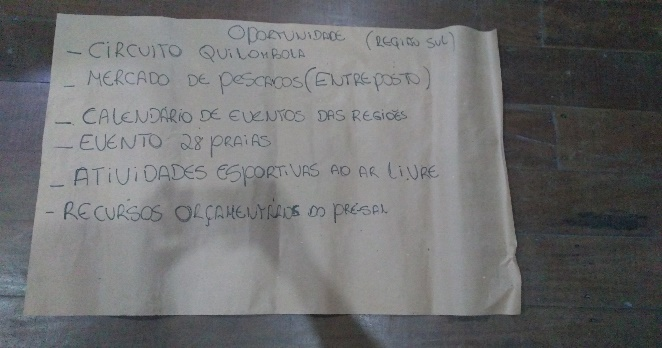 OPORTUNIDADE (REGIÃO SUL)
- CIRCUITO QUILOMBOLA
- MERCADO DE PESCADOS (ENTREPOSTO)
- CALENDÁRIO DE EVENTOS DAS REGIÕES
- EVENTO 28 PRAIAS
- ATIVIDADES ESPORTIVAS AO AR LIVRE
- RECURSOS ORÇAMENTÁRIOS DO PRESAL